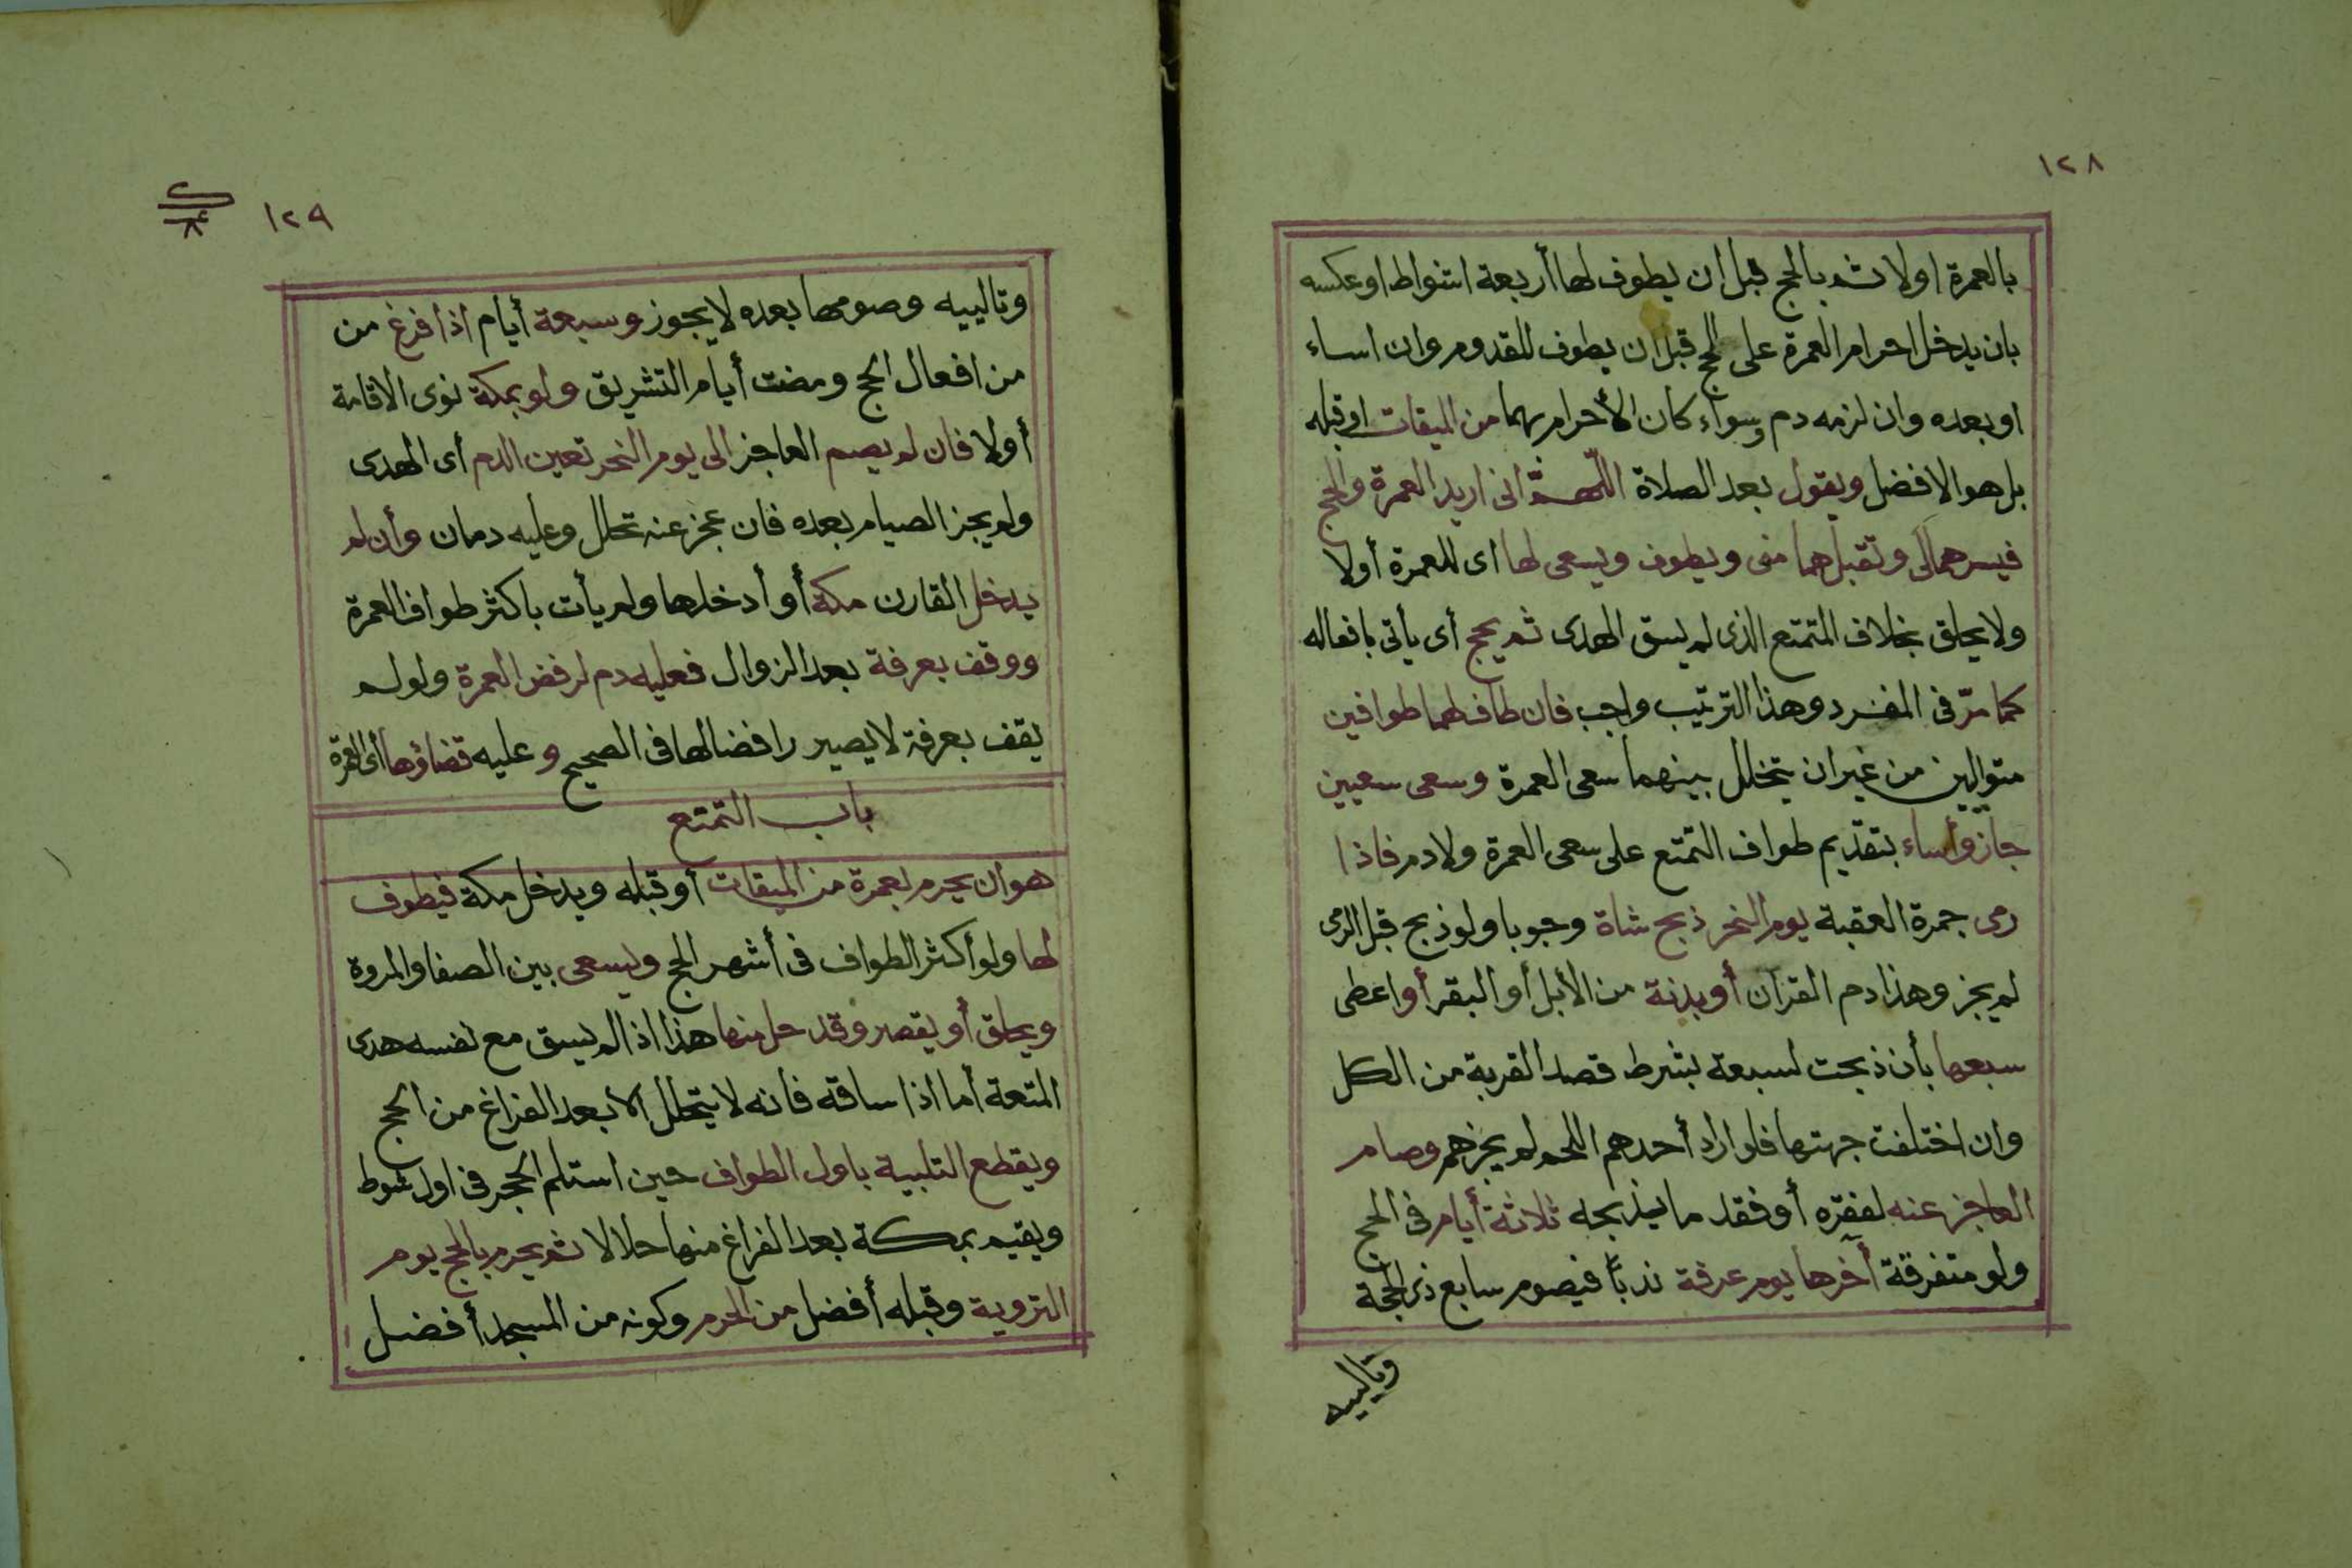 ١٢٨
بالعمرة اولا ثم بالحج قبل ان يطوف لها أربعة اشواط او عكسه
بان يدخل احرام العمرة على الحج قبل ان يطوف للقدوم وان اساء
او بعده وان لزمه دم وسواء كان الأحرام بهما من الميقات او قبله
بل هو الافضل ويقول بعد الصلاة اللهمّ انى اريد العمرة والحج
فيسرهما لى وتقبلهما منى ويطوف ويسعى لها اى للعمرة أولا
ولا يحلق بخلاف المتمتع الذى لم يسق الهدى ثم يحج أى يأتى بافعاله
كما مرّ فى المفرد وهذا الترتيب واجب فان طاف لهما طوافين
متواليين من غير ان يتخلل بينهما سعى العمرة وسعى سعيين
جاز وأساء بتقديم طواف التمتع على سعى العمرة ولا دم فاذا
رمى جمرة العقبة يوم النحر ذبح شاة وجوبا ولو ذبح قبل الرمى
لم يجز وهذا دم القران أو بدنة من الأبل أو البقر أو اعطى
سبعها بأن ذبحت لسبعة بشرط قصد القربة من الكل
وان اختلفت جهتها فلو اراد أحدهم اللحم لم يجزهم وصام
العاجز عنه لفقره أو فقد ما يذبحه ثلاثة أيام فى الحج
ولو متفرقة آخرها يوم عرفة ندباً فيصوم سابع ذى الحجة
وتالييه
١٢٩
وتالييه وصومها بعده لا يجوز وسبعة أيام اذا فرغ من
من افعال الحج ومضت أيام التشريق ولو بمكة نوى الاقامة
أولا فان لم يصم العاجز الى يوم النحر تعين الدم أى الهدى
ولم يجز الصيام بعده فان عجز عنه تحلل وعليه دمان وأن لم
يدخل القارن مكة أو أدخلها ولم يأت باكثر طواف العمرة
ووقف بعرفة بعد الزوال فعليه دم لرفض العمرة ولو لم
يقف بعرفة لا يصير رافضا لها فى الصحيح وعليه قضاؤها أى العمرة
باب التمتع
هو ان يحرم بعمرة من الميقات أو قبله ويدخل مكة فيطوف
لها ولو أكثر الطواف فى أشهر الحج ويسعى بين الصفا والمروة
ويحلق أو يقصر وقد حل منها هذا اذا لم يسق مع نفسه هدى
المتعة أما اذا ساقه فأنه لا يتحلل الا بعد الفراغ من الحج
ويقطع التلبية باول الطواف حين استلم الحجر فى اول شوط
ويقيم بمكة بعد الفراغ منها حلالا ثم يحرم بالحج يوم
التروية وقبله أفضل من الحرم وكونه من المسجد أفضل